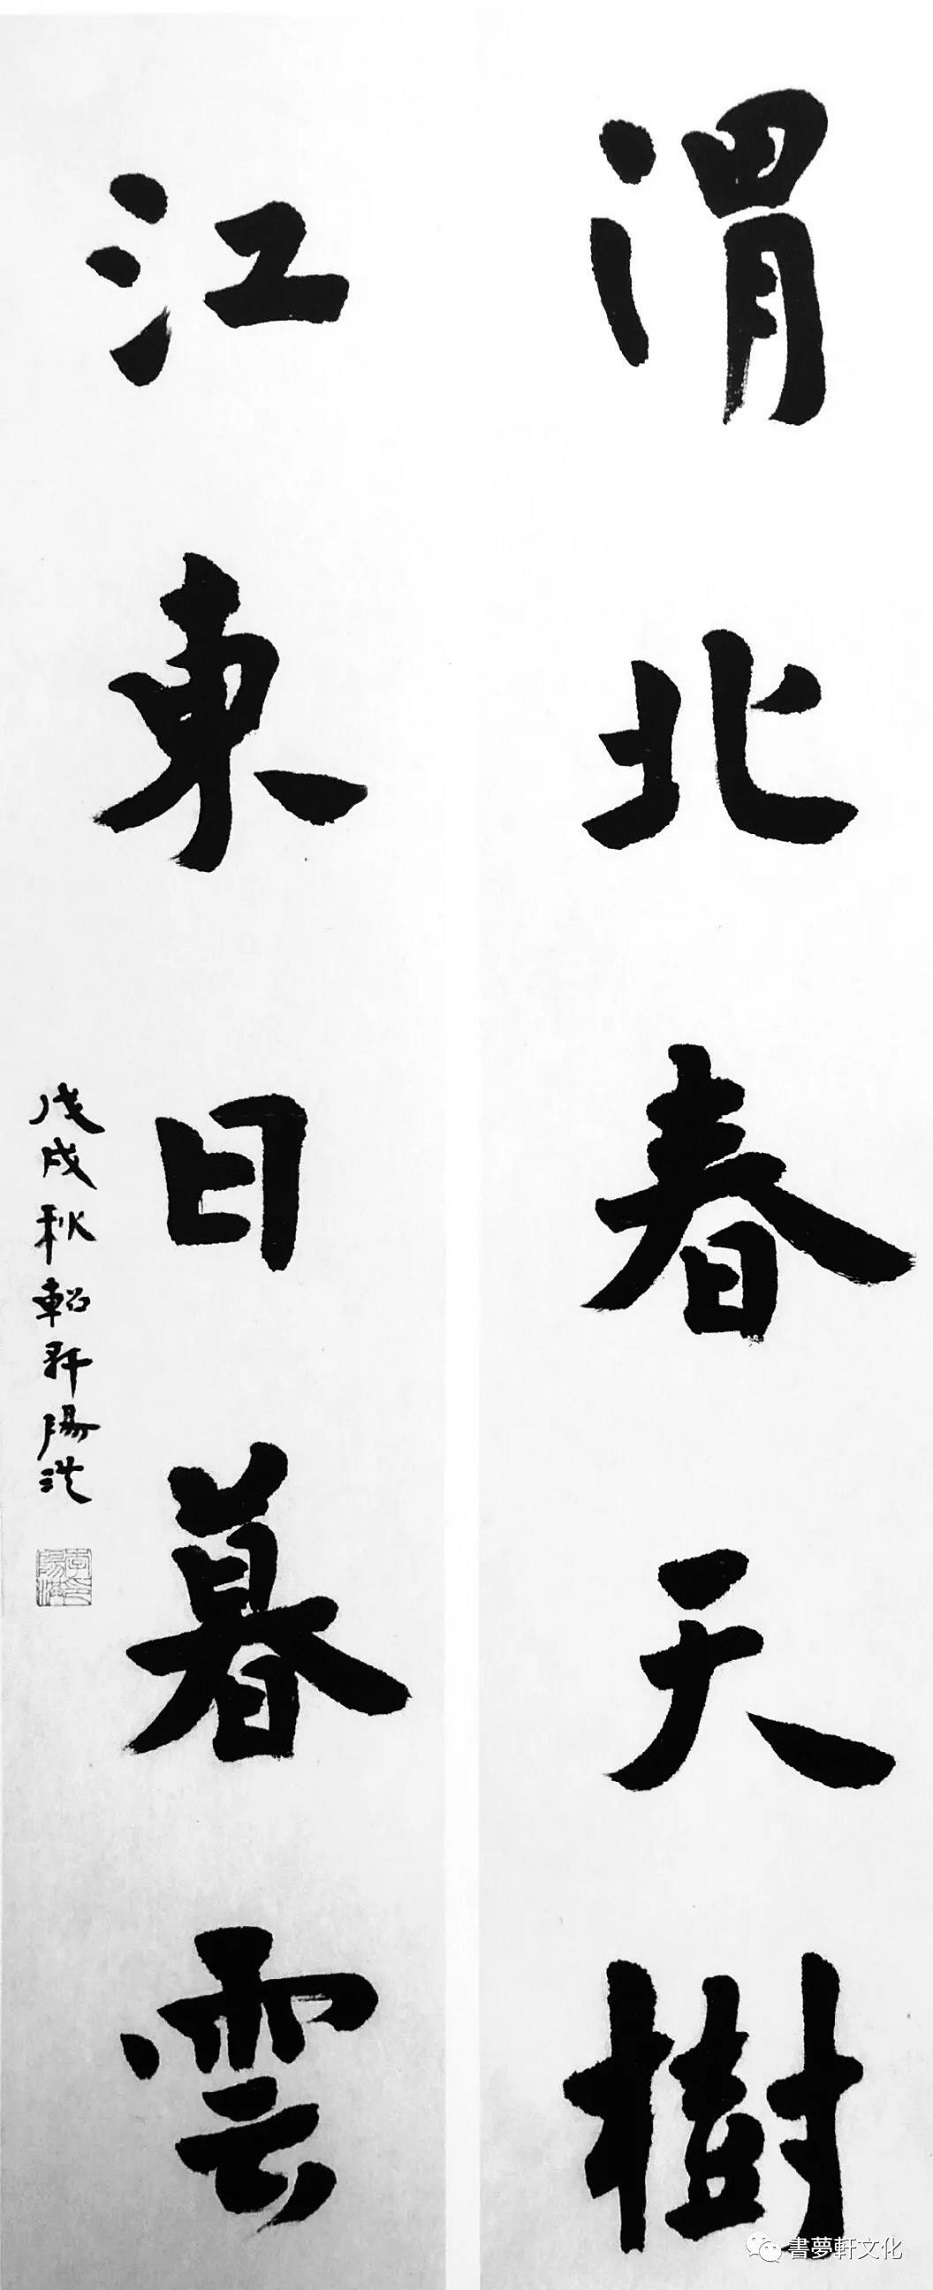 渭北春天樹
江東日暮雲
戊戌秋陽洪
書夢軒文化